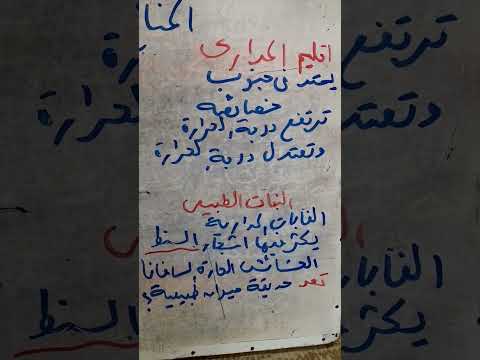 المنا
اقليم المدارى
يمتد فى جنوب
خصائصه
ترتفع درجة الحرارة
وتعتدل درجة الحرارة
النبات الطبيعى
الغابات المدارية
يكثر بها اشجار السنط
الحشائش الحارة لسافانا
تعد حديقة حيوان طبيعية؟